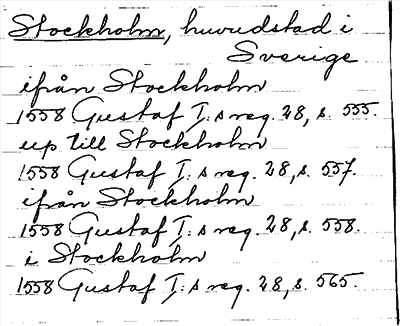 Stockholm, huvudstad i
Sverige
ifrån Stockholm
1558 Gustaf I:s reg. 28, s. 555.
up till Stockholm
1558 Gustaf I:s reg. 28, s. 557.
ifrån Stockholm
1558 Gustaf I:s reg. 28, s. 558.
i Stockholm
1558 Gustaf I:s reg. 28, s. 565.